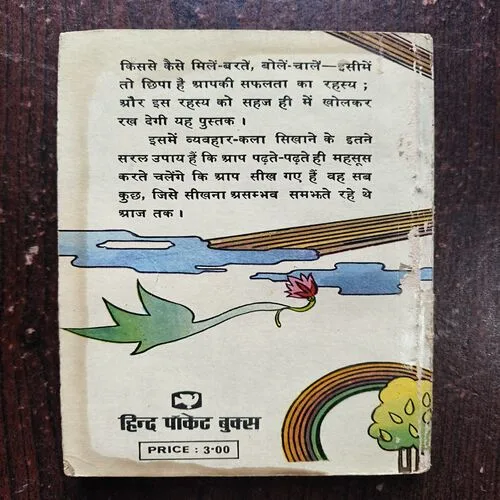 किससे कैसे मिलें-बरतें, बोलें-चालें—इसीमें
तो छिपा है आपकी सफलता का रहस्य ;
और इस रहस्य को सहज ही में खोलकर
रख देगी यह पुस्तक ।
इसमें व्यवहार-कला सिखाने के इतने
सरल उपाय हैं कि आप पढ़ते-पढ़ते ही महसूस
करते चलेंगे कि आप सीख गए हैं वह सब
कुछ, जिसे सीखना असम्भव समझते रहे थे
आज तक ।
हिन्द पॉकेट बुक्स
PRICE : 3·00